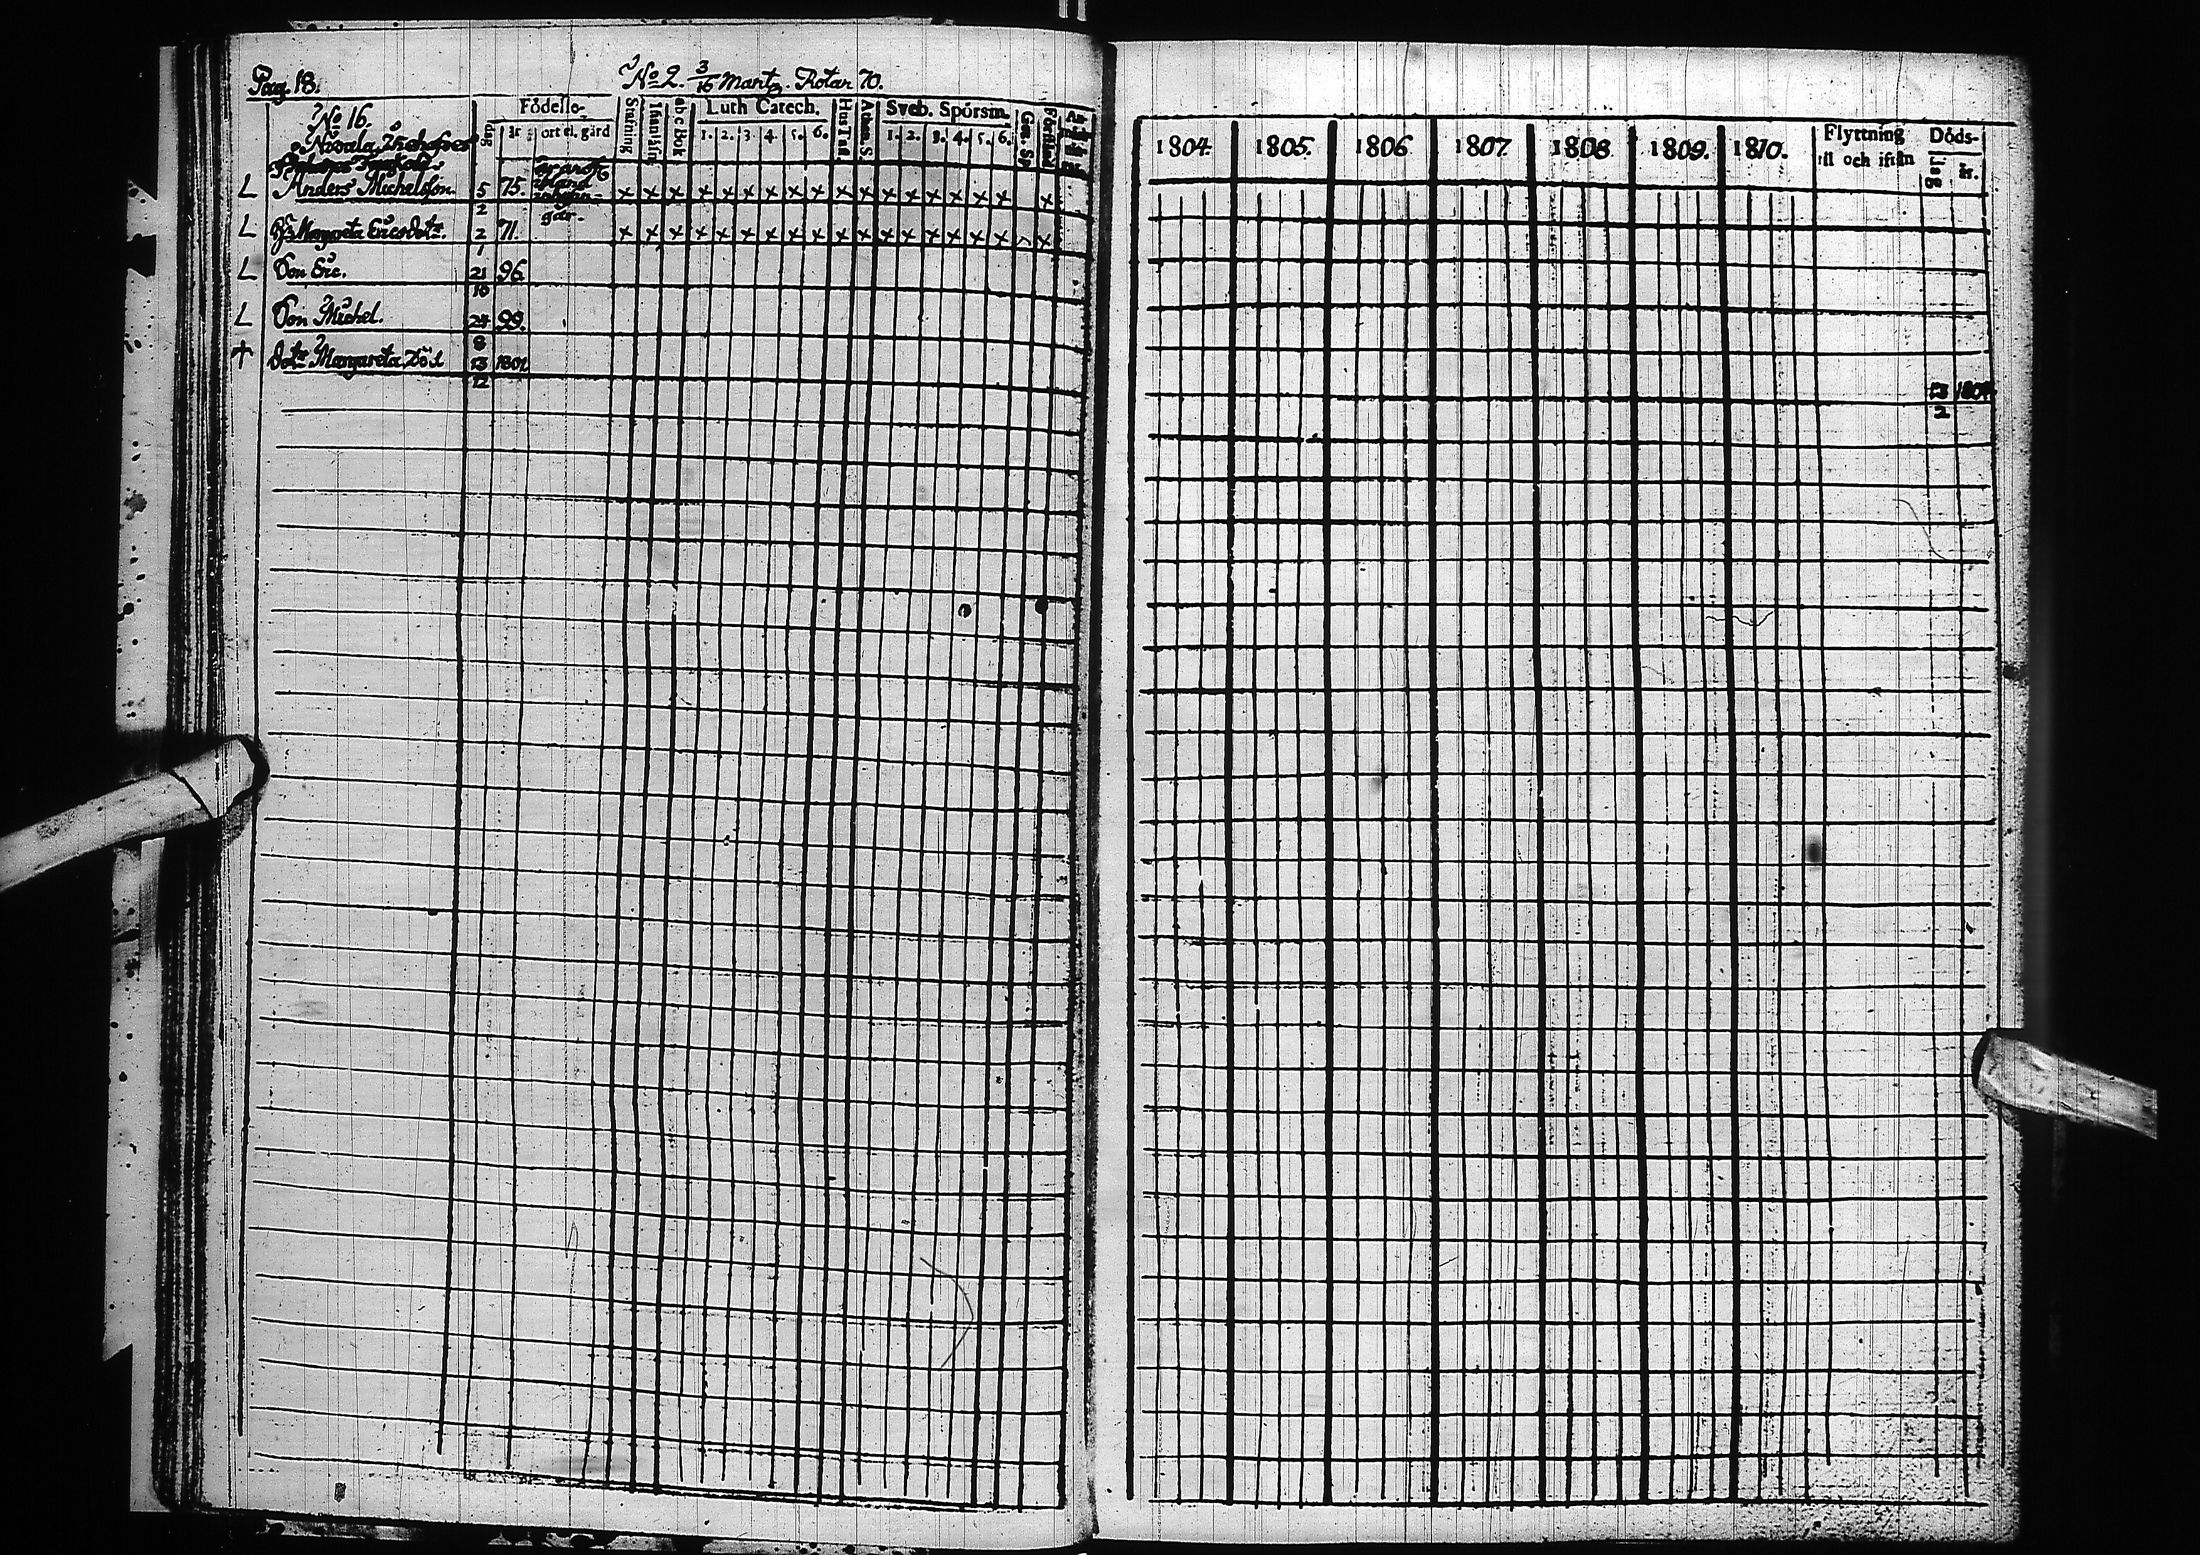 Pag. 18.
No 2. 3/16 Martz. Rotar 70.
Födelse-
dag
år
ort el. gård
Stafning
Innanläsn.
abc Bok
Luth Catech.
1. 2. 3. 4. 5. 6.
Hus Tafl
Athan. S.
Sveb. Spörsm.
1. 2. 3. 4. 5. 6.
Förstånd
No 16.
Anders Michelsson. 5/2 75.
Hust. Margareta Ericsdotr. 2/1 71.
Son Eric. 21/10 96.
Son Michel. 24/8 99.
+ dotr Margareta, död 13/12 1801
1804. 1805. 1806. 1807. 1808. 1809. 1810.
Flyttning
till och ifrån
Döds-
dag
år.